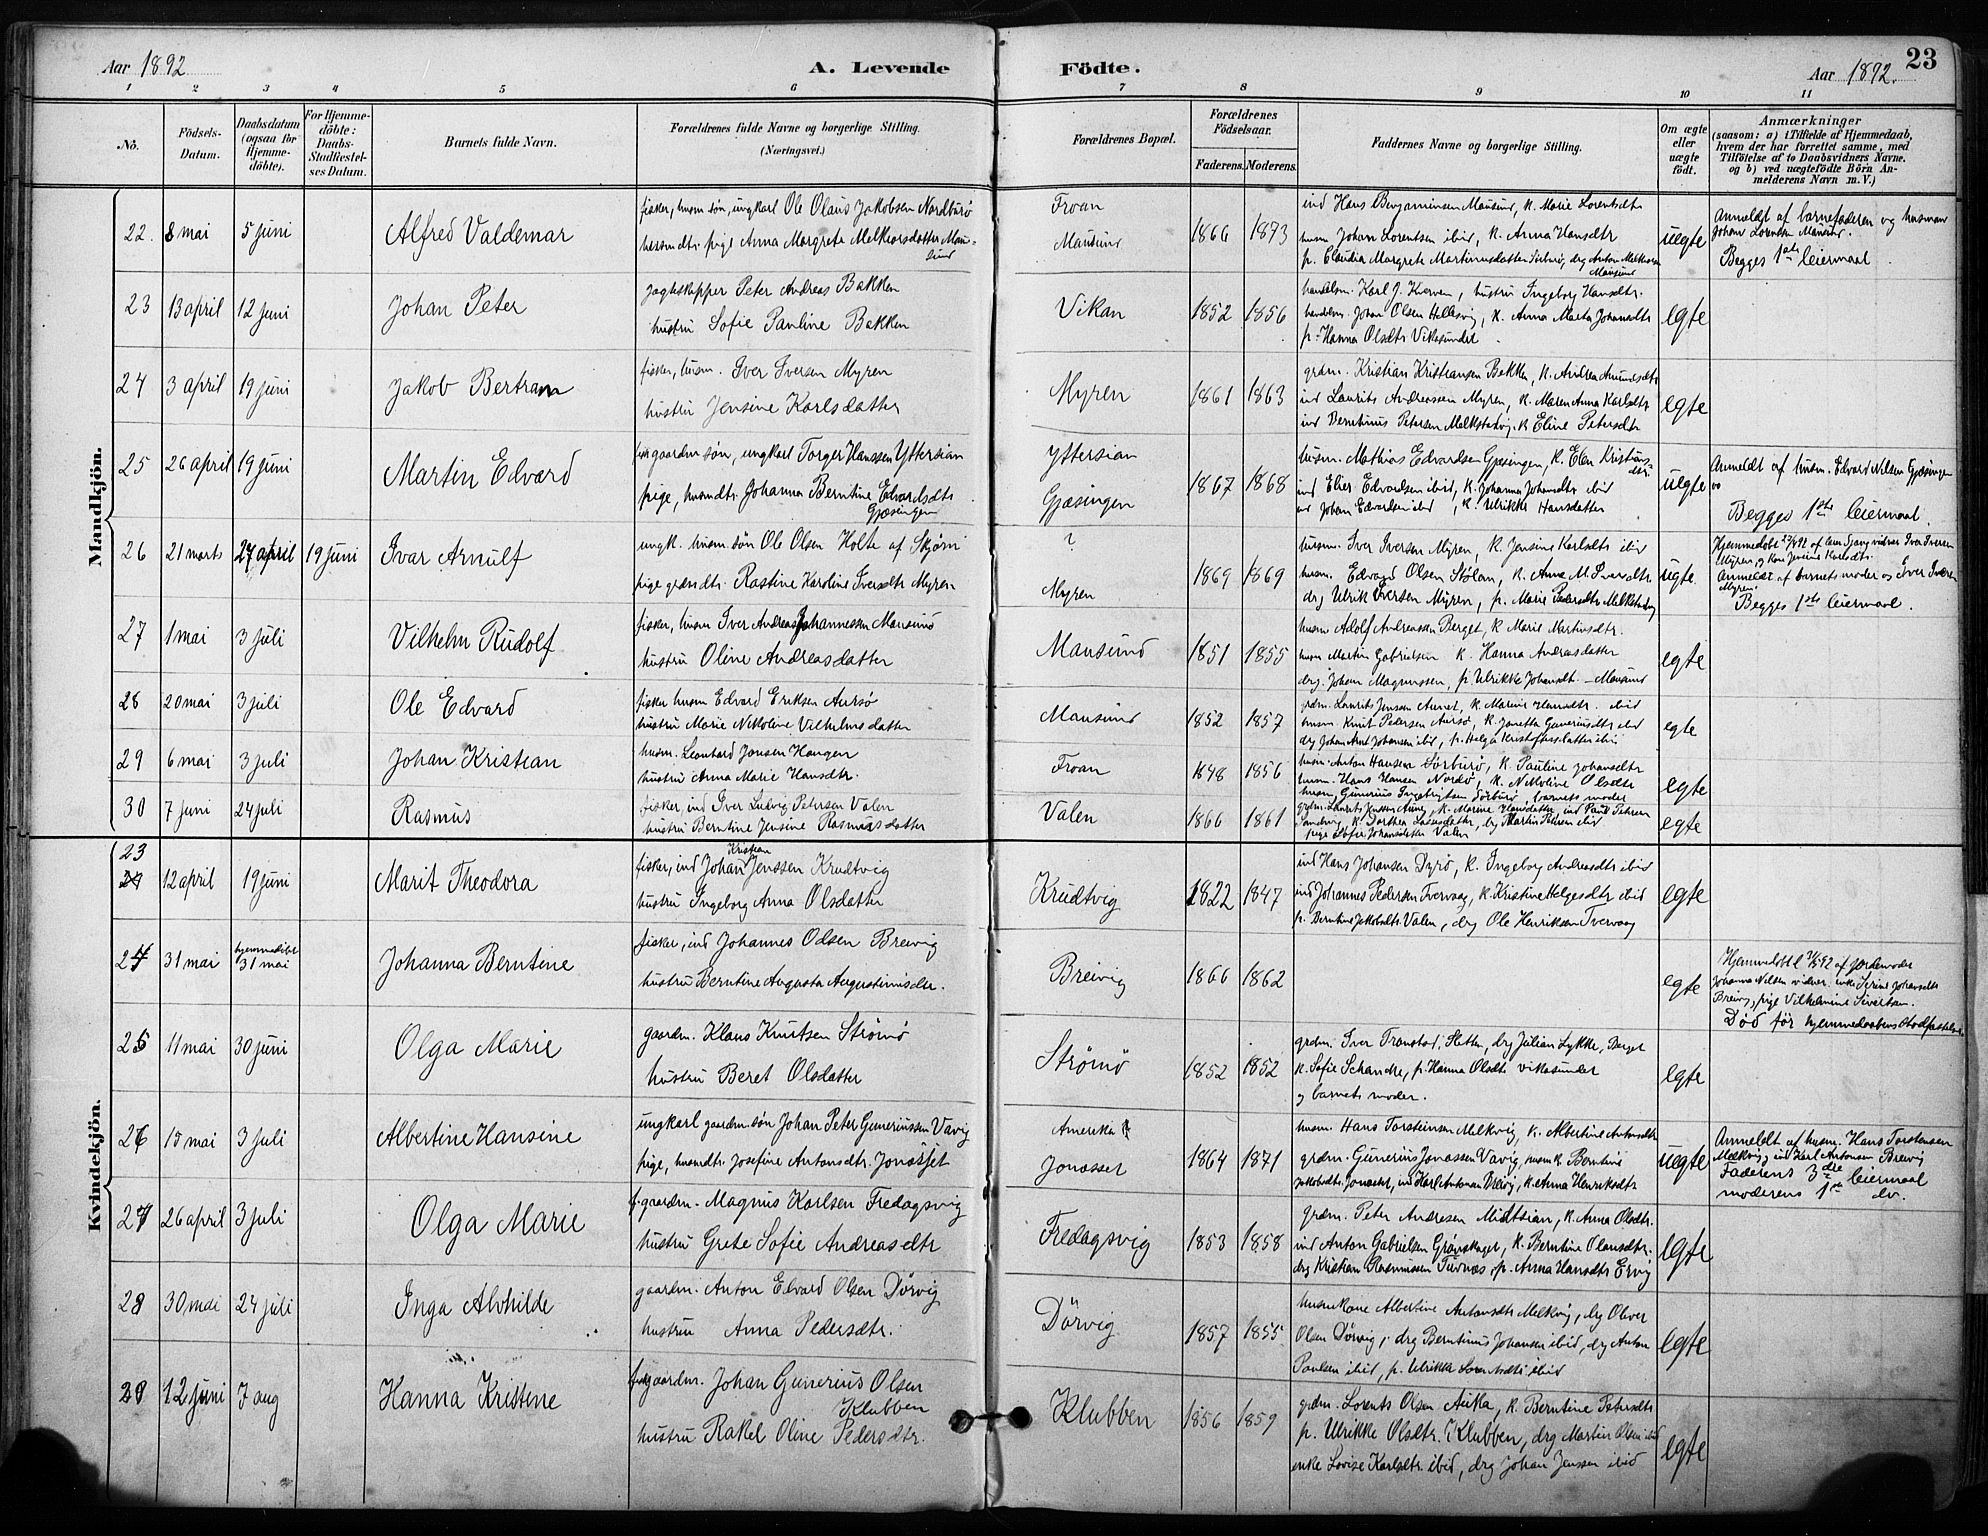 Aar 1892
A. Levende Födte.
Aar 1892.
23
1 2 3 4 5 6 7 8 9 10 11
No.
Födsels-Datum.
Daabsdatum (ogsaa for Hjemmedöbte).
For Hjemmedöbte: Daabs-Stadfæstelses Datum.
Barnets fulde Navn.
Forældrenes fulde Navne og borgerlige Stilling. (Næringsvei.)
Forældrenes Bopæl.
Forældrenes Födselsaar.
Faderens. Moderens.
Faddernes Navne og borgerlige Stilling.
Om ægte eller uægte födt.
Anmærkninger (saasom: a) i Tilfælde af Hjemmedaab, hvem der har forrettet samme, med Tilföielse af to Daabsvidners Navne, og b) ved uægtefödte Börn Anmelderens Navn m. V.)
Mandkjön.
22. 8 mai 5 juni Alfred Valdemar
fisker, husm søn, ungkarl Ole Olaus Jakobsen Nordburö
husmdtr. pige Anna Margreta Melkiorsdatter Mausund
Froan
Mausund
1866 1873
ind Hans Benjaminsen Mausund, k. Marie Lorentsdtr
husm Johan Lorentsen ibid, k. Anna Hansdtr
p. Claudia Margrete Martinusdatter Sörburö, drg Anton Melkiorsen Mausund
uegte
Anmeldt af barnefaderen og husmand
Johan Lorentsen Mausund.
Begges 1ste leiermaal.
23 13 april 12 juni Johan Peter
Jagteskipper Peter Andreas Bakken
hustru Sofie Pauline Bakken
Vikan
1852 1856
handelsm. Karl J. Kierven, hustru Ingeborg Hansdtr.
handelsm. Johan Olsen Hellesvig, k. Anna Marta Johansdtr
p. Hanna Olsdtr Vikasundet
egte
24 3 april 19 juni Jakob Bertram
fisker, husm. Iver Iversen Myren
hustru Jensine Karlsdatter
Myren
1861 1863
grdm. Kristian Kristiansen Bekken, k. Andrea Amundsdtr
ind Laurits Andreassen Myren, k. Maren Anna Karlsdtr
ind Berntinus Petersen Melkstadvig, k Eline Petersdtr
egte
25 26 april 19 juni Martin Edvard
gaardm søn, ungkarl Torger Hanssen Yttersian
pige, husmdtr. Johanna Berntine Edvardsdtr Gjæsingen
Yttersian
Gjæsingen
1867 1868
husm. Mathias Edvardsen Gjæsingen, k. Elen Kristiansdtr.
ind Elier Edvardsen ibid, k. Johanna Johansdtr ibid
ind Johan Edvardsen ibid, k. Ulrikke Hansdatter
uegte
Anmeldt af husm. Edvard Nilsen Gjæsingen
Begges 1ste leiermaal.
26 21 marts 27 april 19 juni Ivar Arnulf
ungk. husm. søn Ole Olsen Holte af Skjörn
pige grdmdtr. Rastine Karoline Iversdtr Myren
?
Myren
1869 1869
husm. Iver Iversen Myren, k. Jensine Karlsdtr ibid
husm. Edvard Olsen Stölan, k. Anna M. Iversdtr
drg Ulrik Iversen Myren, p. Marie Pedersdtr Melkstadvig
uegte
Myren, og kone Jensine Karlsdtr.
Anmeldt af barnets moder og Iver Iversen Myren.
Begges 1ste leiermaal.
27 1 mai 3 juli Vilhelm Rudolf
fisker, husm Iver Andreas Johannessen Mausund
hustru Oline Andreasdatter
Mausund
1851 1855
husm Adolf Andreassen Berget, k Marie Martinsdtr.
husm Martin Gabrielsen k. Hanna Andreasdatter
drg. Johan Magnussen, p. Ulrikke Johansdt. – Mausund
egte
28 20 mai 3 juli Ole Edvard
fisker husm Edvard Eriksen Aursö
hustru Marie Nikoline Vilhelmsdatter
Mausund
1852 1857
grdm. Laurits Jenssen Aunet, k. Marine Hansdtr. ibid
husm. Knut Pedersen Aursö, k. Janetta Gunerinsdtr ibid
drg Johan Arnt Johansen ibid, p. Helga Kristoffersdatter ibid
egte
29 6 mai 3 juli Johan Kristian
husm. Leonhard Jansen Haugen
hustru Anna Marie Hansdtr.
Froan
1848 1856
husm. Anton Hansen Sörburö, k. Pauline Johansdtr
husm. Hans Hansen Nordö, k. Nikoline Olsdtr
husm. Gunerius Ingebrigtsen Sörburö, barnets moder
egte
30 7 juni 24 juli Rasmus
fisker, ind Iver Ludvig Petersen Valen
hustru Berntine Jensine Rasmusdatter
Valen
1866 1861
pige Sofie Johansdatter Valen
egte
Kvindekjön.
23 12 april 19 juni Marit Theodora
fisker, ind Johan Kristian Jenssen Krudtvig
hustru Ingeborg Anna Olsdatter
Krudtvig
1822 1847
ind Hans Johansen Dyrö, k. Ingeborg Andreasdtr ibid
ind Johannes Pedersen Tvervaag, k. Kristine Helgesdtr ibid
p. Berntine Jakobsdtr Valen, drg Ole Henriksen Tvervaag
egte
24 31 mai hjemmedöbt 31 mai Johanna Berntine
fisker, ind Johannes Odsen Breivig
hustru Berntine Augusta Augustinusdtr.
Breivig
1866 1862
egte
Hjemmedöbt 31/5 92 af Jordemoder
Johanna Nilsen vidner. enke Serine Johansdtr
Breivig, pige Vilhelmine Sivertsen.
Död för hjemmedaabens Stadfæstelse
25 11 mai 30 juni Olga Marie
gaardm. Klaus Knutsen Strömö
hustru Beret Olsdatter
Strömö
1852 1852
grdm. Iver Transtad, Sletten, drg Julian Lykke, Berget
k. Sofie Schanche, p. Hanna Olsdtr Vikasundet
og barnets moder.
egte
26 15 mai 3 juli Albertine Hansine
ungkarl gaardm. søn Johan Peter Gunerinssen Vavig
pige, husmdtr. Josefine Antonsdtr. Jonasset
Amerika
Jonasset
1864 1871
husm. Hans Torsteinsen Melkvig, k. Albertine Antonsdtr
grdm. Gunerius Jonassen Vavig, husm k. Berntine
Jakobsdtr Jonasset, ind Karl Antonsen Breivig, k. Anna Henriksdtr
uegte
Anmeldt af husm. Hans Torstensen
Melkvig, ind Karl Antonsen Breivig
Faderens 3dre leiermaal
moderens 1ste do.
27 26 april 3 juli Olga Marie
f. gaardm. Magnus Karlsen Fredagsvig
hustru Grete Sofie Andreasdtr
Fredagsvig
1853 1858
grdm. Peter Andresen Midtsian, k. Anna Olsdtr.
ind Anton Gabrielsen Grönskaget, k. Berntine Olausdtr.
drg Kristian Rasmussen Turnæs, p. Anna Hansdtr Ervig
egte
28 30 mai 24 juli Inga Alvhilde
gaardm. Anton Edvard Olsen Dörvig
hustru Anna Pedersdtr.
Dörvig
1857 1855
husmkone Albertine Antonsdtr Melkvig, drg Oliver
Olsen Dörvig, drg Berntinus Johansen ibid, drg Anton
Paulsen ibid, p. Ulrikka Lorentsdtr ibid
egte
29 12 juni 7 aug Hanna Kristene
gaardm. Johan Gunerius Olsen Klubben
hustru Rakel Oline Pedersdtr.
Klubben
1856 1859
grdm. Lorents Olsen Auka, k. Berntine Petersdtr
p. Ulrikke Olsdtr. Klubben, drg Martin Olsen ibid
enke Lovise Karlsdtr ibid, drg Johan Jenssen ibid
egte